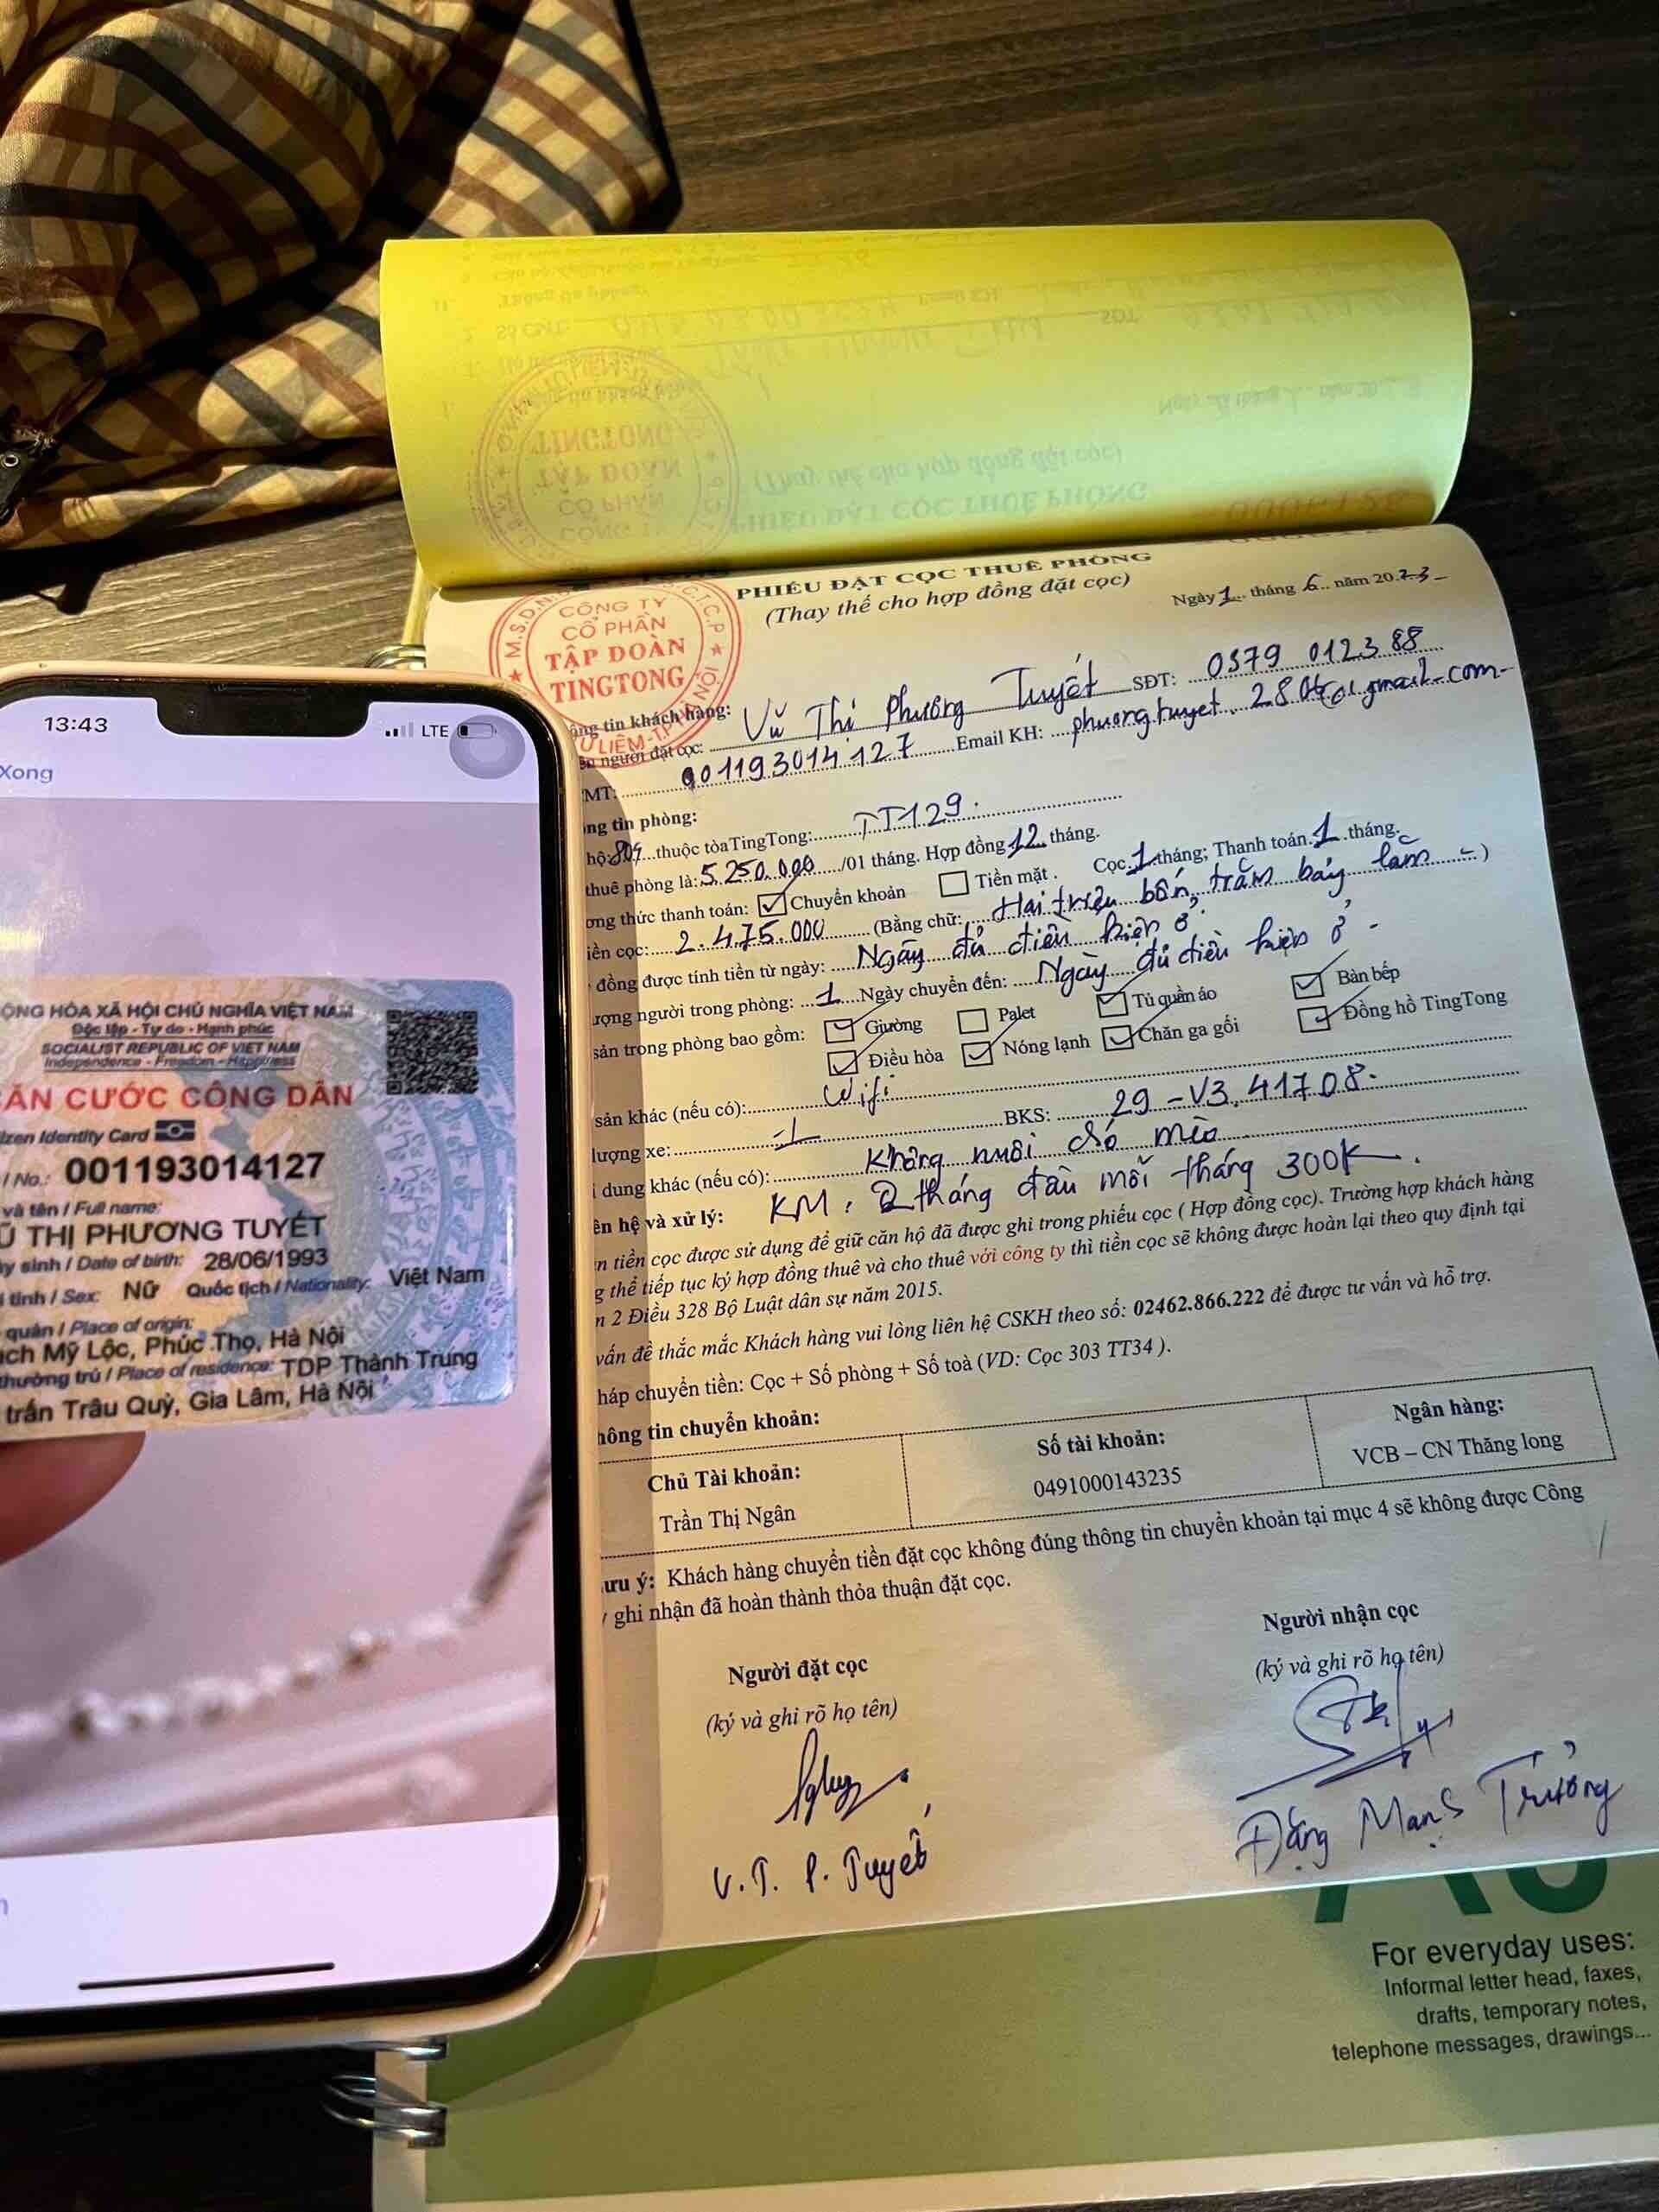 PHIẾU ĐẶT CỌC THUÊ PHÒNG
(Thay thế cho hợp đồng đặt cọc)
Ngày 1 tháng 6 năm 2023
CÔNG TY
CỔ PHẦN
TẬP ĐOÀN
TINGTONG
thông tin khách hàng:
người đặt cọc: Vũ Thị Phương Tuyết SĐT: 0379 0123 88
CMT: 001193014127 Email KH:
thông tin phòng:
hộ 809 thuộc tòa TingTong: TT129.
thuê phòng là: 5.250.000 /01 tháng. Hợp đồng 12 tháng. Cọc 1 tháng; Thanh toán 1 tháng.
ơng thức thanh toán: Chuyển khoản Tiền mặt.
iền cọc: 2.475.000 (Bằng chữ: Hai triệu bốn trăm bảy lăm )
đồng được tính tiền từ ngày: Ngày đủ điều kiện ở.
ượng người trong phòng: 1 Ngày chuyển đến: Ngày đủ điều kiện ở -
sản trong phòng bao gồm: Giường Palet Tủ quần áo Bàn bếp
Điều hòa Nóng lạnh Chăn ga gối Đồng hồ TingTong
sản khác (nếu có): Wifi
lượng xe: 1 BKS: 29-V3.41708.
dung khác (nếu có): Không nuôi chó mèo
KM: 2 tháng đầu mỗi tháng 300K.
ên hệ và xử lý:
n tiền cọc được sử dụng để giữ căn hộ đã được ghi trong phiếu cọc ( Hợp đồng cọc). Trường hợp khách hàng
g thể tiếp tục ký hợp đồng thuê và cho thuê với công ty thì tiền cọc sẽ không được hoàn lại theo quy định tại
n 2 Điều 328 Bộ Luật dân sự năm 2015.
vấn đề thắc mắc Khách hàng vui lòng liên hệ CSKH theo số: 02462.866.222 để được tư vấn và hỗ trợ.
háp chuyển tiền: Cọc + Số phòng + Số toà (VD: Cọc 303 TT34 ).
hông tin chuyển khoản:
Chủ Tài khoản: Số tài khoản: Ngân hàng:
Trần Thị Ngân 0491000143235 VCB – CN Thăng long
ưu ý: Khách hàng chuyển tiền đặt cọc không đúng thông tin chuyển khoản tại mục 4 sẽ không được Công
ghi nhận đã hoàn thành thỏa thuận đặt cọc.
Người đặt cọc Người nhận cọc
(ký và ghi rõ họ tên) (ký và ghi rõ họ tên)
V.T.P.Tuyết Đặng Mạnh Trưởng
13:43 LTE
Xong
ỘNG HÒA XÃ HỘI CHỦ NGHĨA VIỆT NAM
Độc lập - Tự do - Hạnh phúc
SOCIALIST REPUBLIC OF VIET NAM
Independence - Freedom - Happiness
ĂN CƯỚC CÔNG DÂN
izen Identity Card
/ No.: 001193014127
và tên / Full name:
Ũ THỊ PHƯƠNG TUYẾT
ày sinh / Date of birth: 28/06/1993
i tính / Sex: Nữ Quốc tịch / Nationality: Việt Nam
quán / Place of origin:
ạch Mỹ Lộc, Phúc Thọ, Hà Nội
thường trú / Place of residence: TDP Thành Trung
trấn Trâu Quỳ, Gia Lâm, Hà Nội
For everyday uses:
Informal letter head, faxes,
drafts, temporary notes,
telephone messages, drawings...